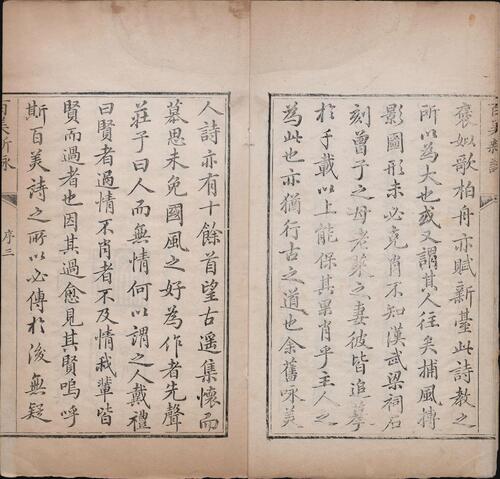 褒姒歌柏舟亦賦新臺此詩教之
所以為大也或又謂其人往矣捕風摶
影圖形未必克肖不知漢武梁祠石
刻曾子之母老萊之妻彼皆追摹
於千載以上能保其畢肖乎主人之
為此也亦猶行古之道也余舊咏美
人詩亦有十餘首望古遥集懷而
慕思未免國風之好為作者先聲
莊子曰人而無情何以謂之人戴禮
曰賢者過情不肖者不及情我輩皆
賢而過者也因其過愈見其賢嗚呼
斯百美詩之所以必傳於後無疑
百美新詠
序三